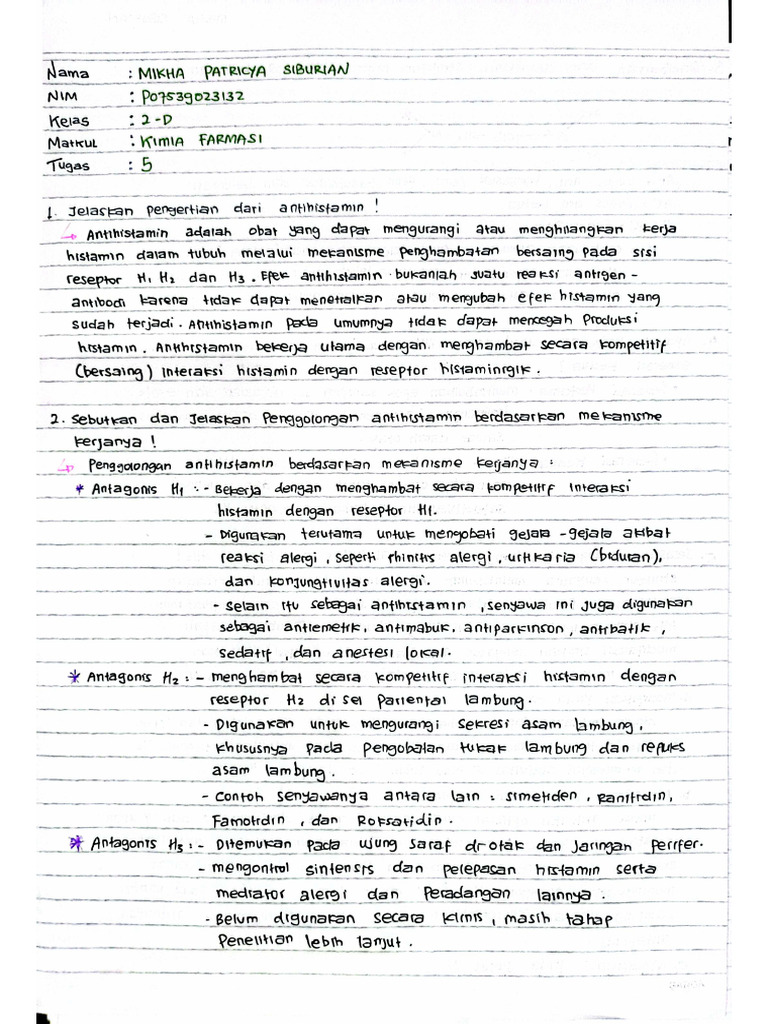 Nama : MIKHA PATRICYA SIBURIAN
NIM : P07539023132
Kelas : 2-D
Matkul : KIMIA FARMASI
Tugas : 5
1. Jelaskan pengertian dari antihistamin !
→ Antihistamin adalah obat yang dapat mengurangi atau menghilangkan kerja
histamin dalam tubuh melalui mekanisme penghambatan bersaing pada sisi
reseptor H1 H2 dan H3. Efek antihistamin bukanlah suatu reaksi antigen -
antibodi karena tidak dapat menetralkan atau mengubah efek histamin yang
sudah terjadi. Antihistamin pada umumnya tidak dapat mencegah produksi
histamin. Antihistamin bekerja utama dengan menghambat secara kompetitif
(bersaing) interaksi histamin dengan reseptor histaminrgik.
2. Sebutkan dan Jelaskan Penggolongan antihistamin berdasarkan mekanisme
kerjanya !
→ Penggolongan antihistamin berdasarkan mekanisme kerjanya :
* Antagonis H1 : - Bekerja dengan menghambat secara kompetitif interaksi
histamin dengan reseptor H1.
- Digunakan terutama untuk mengobati gejala -gejala akibat
reaksi alergi, seperti rhinitis alergi, urtikaria (biduran),
dan konjungtivitas alergi.
- Selain itu sebagai antihistamin, senyawa ini juga digunakan
sebagai antiemetik, antimabuk, antiparkinson, antibatik,
sedatif, dan anestesi lokal.
* Antagonis H2 : - menghambat secara kompetitif interaksi histamin dengan
reseptor H2 di sel pariental lambung.
- Digunakan untuk mengurangi sekresi asam lambung,
khususnya pada pengobatan tukak lambung dan repuks
asam lambung.
- Contoh senyawanya antara lain : simetiden, Ranitidin,
Famotidin, dan Roksatidin.
* Antagonis H3 : - Ditemukan pada ujung saraf di otak dan jaringan perifer.
- mengontrol sintensis dan pelepasan histamin serta
mediator alergi dan Peradangan lainnya.
- Belum digunakan secara klinis, masih tahap
Penelitian lebih lanjut.